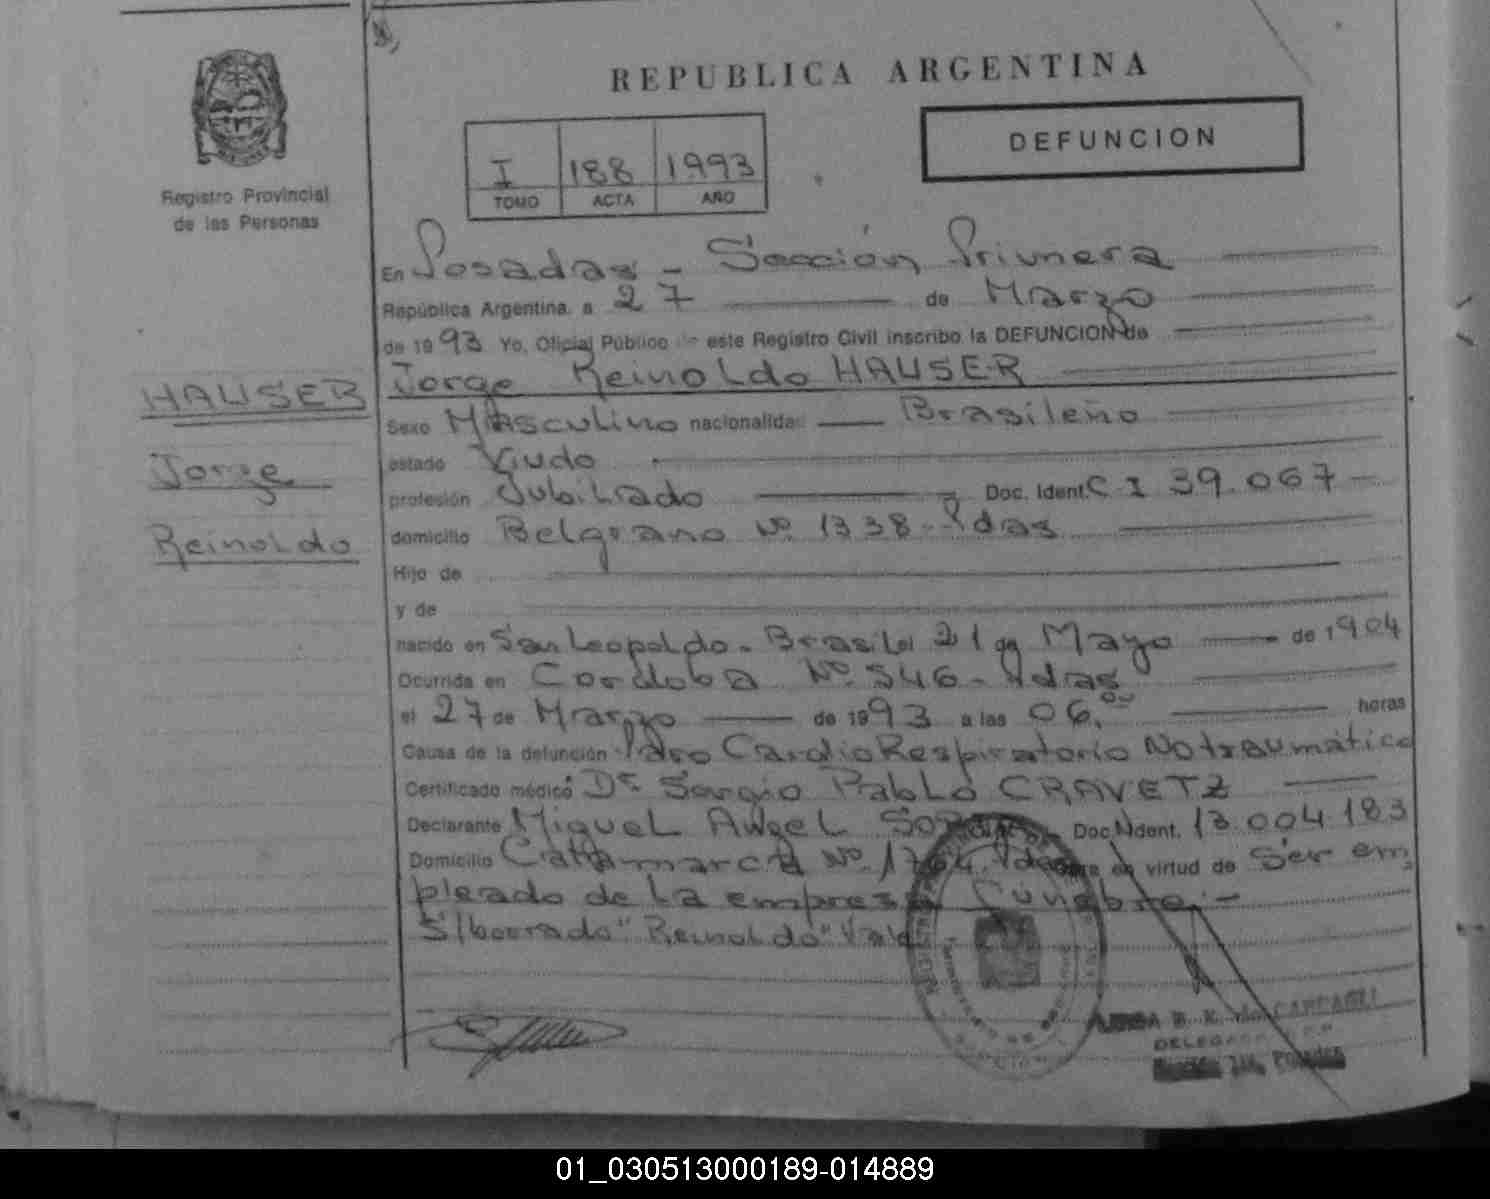 REPUBLICA ARGENTINA
DEFUNCION
I 188 1993
TOMO ACTA AÑO
Registro Provincial
de las Personas
En Posadas - Sección Primera
República Argentina, a 27 de Marzo
de 1993 Yo, Oficial Público de este Registro Civil inscribo la DEFUNCION de
HAUSER
Jorge
Reinoldo
Jorge Reinoldo HAUSER
Sexo Masculino nacionalidad Brasileño
estado Viudo
profesión Jubilado Doc. Ident. C I 39.067
domicilio Belgrano Nº 1338 - Pdas
Hijo de
y de
nacido en San Leopoldo - Brasil el 21 de Mayo de 1904
Ocurrida en Cordoba Nº 546 - Pdas
el 27 de Marzo de 1993 a las 06,00 horas
Causa de la defunción Paro CardioRespiratorio No traumático
Certificado médico Dr Sergio Pablo CRAVETZ
Declarante Miguel Angel Doc. Ident. 13.004.183
Domicilio Catamarca Nº 1764 Pdas en virtud de Ser em
pleado de La empresa Fúnebre.-
S/borrado "Reinoldo" Vale
B. K. de
DELEGADA
Posadas
01_030513000189-014889